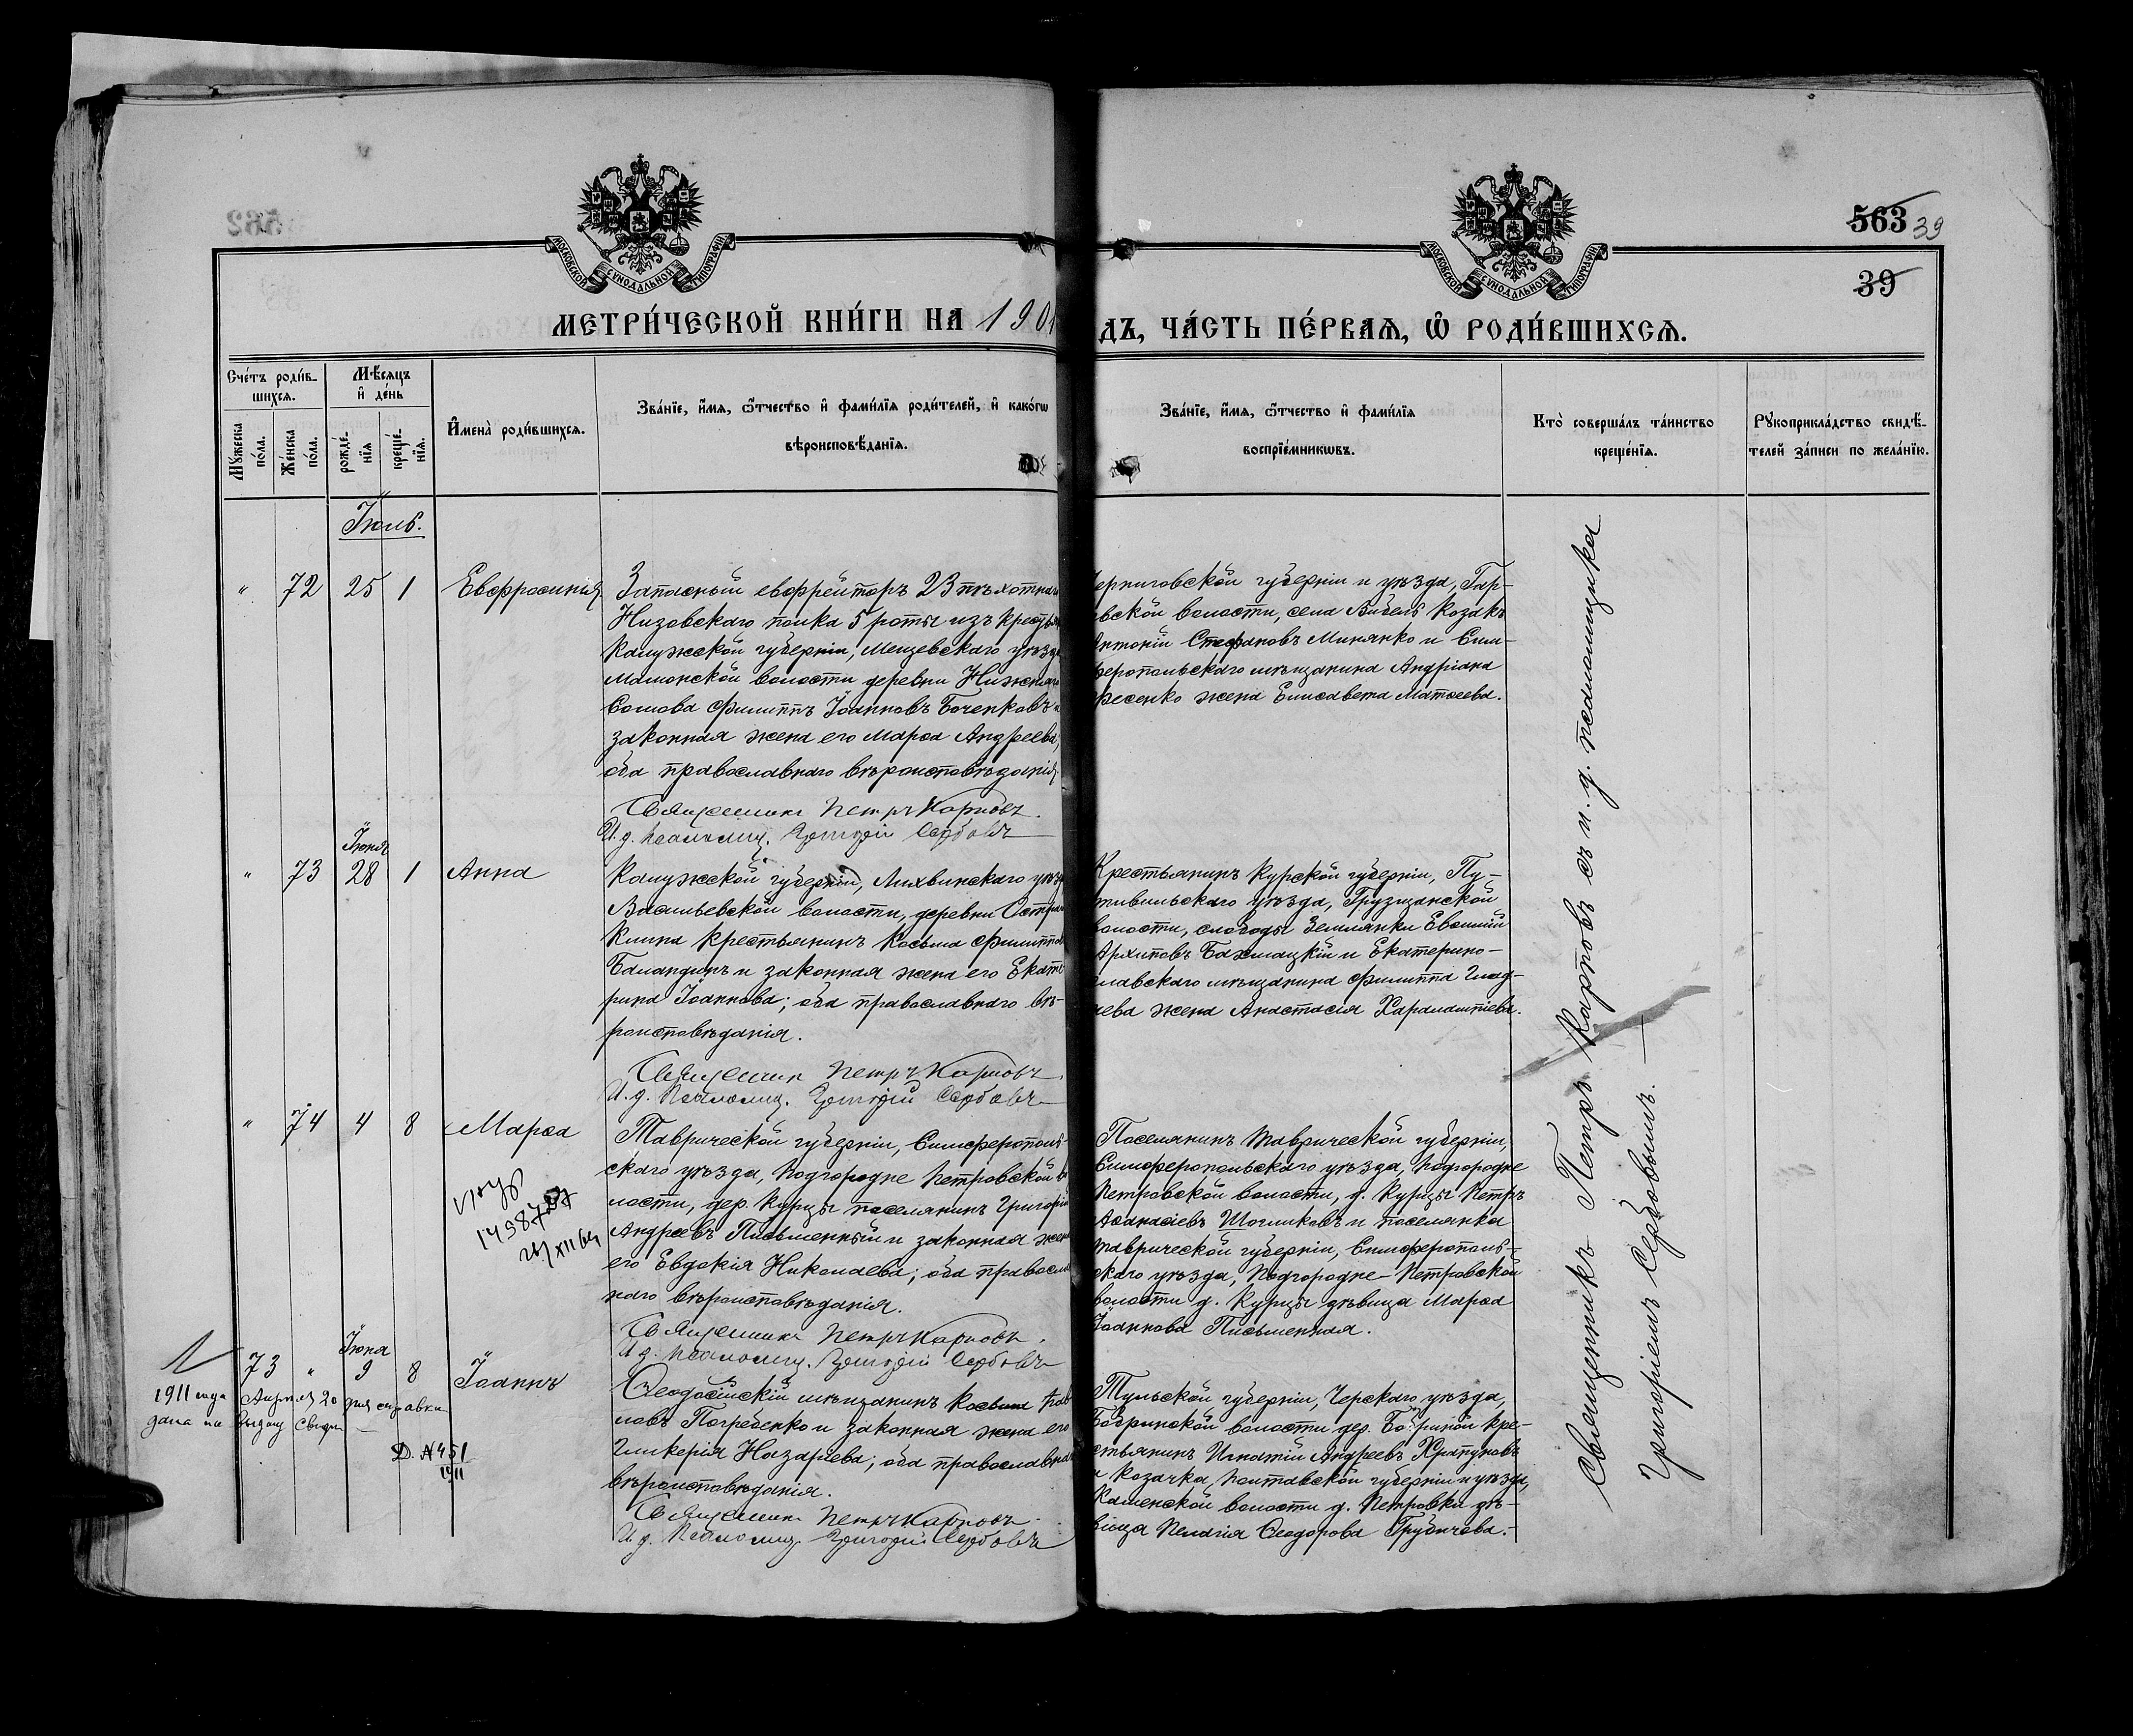 563 39
39
МОСКОВСКОЙ СѴНОДАЛЬНОЙ ТИПОГРАФІИ
МОСКОВСКОЙ СѴНОДАЛЬНОЙ ТИПОГРАФІИ
МЕТРИ́ЧЕСКОЙ КНИ́ГИ НА 1901
ДЪ, ЧА́СТЬ ПЕ́РВАѦ, Ѡ҆ РОДИ́ВШИХСѦ.
Сче́тъ роди́в-
шихсѧ.
Мꙋ́жеска по́ла.
Же́нска по́ла.
Мѣ́сѧцъ
и҆ де́нь
рожде́-
нїѧ
креще́-
нїѧ.
И҆мена̀ роди́вшихсѧ.
Зва́нїе, и҆́мѧ, ѻ҆́тчество и҆ фами́лїѧ роди́телей, и҆ како́гѡ
вѣроисповѣ́данїѧ.
Зва́нїе, и҆́мѧ, ѻ҆́тчество и҆ фами́лїѧ
воспрїе́мникѡвъ.
Кто̀ соверша́лъ та́инство
креще́нїѧ.
Рꙋкоприкла́дство свидѣ́-
телей за́писи по жела́нїю.
Іюль.
" 72 25 1 Евфросинія
Запасный ефрейторъ 23 пѣхотнаго
Низовскаго полка 5 роты изъ крестьян
Калужской губерніи, Мещевскаго уѣзда
волости деревни Нижняго
Филиппъ Іоанновъ Боченковъ и
законная жена его Марѳа Андреева,
оба православнаго вѣроисповѣданія.
Священникъ Петръ Карповъ.
И. д. псаломщ. Григорій Сербовъ
Черниговской губерніи и уѣзда,
волости, села Козакъ
Антоній Стефановъ Минянко и Сим-
феропольскаго мѣщанина Андріана
жена Елисавета Матѳеева.
Іюня
" 73 28 1 Анна
Калужской губерніи, Лихвинскаго уѣзда
Васильевской волости, деревни
Клина крестьянинъ Косьма Филипповъ
Баландинъ и законная жена его Екате-
рина Іоаннова; оба православнаго вѣ-
роисповѣданія.
Священникъ Петръ Карповъ.
И. д. псаломщ. Григорій Сербовъ
Крестьянинъ Курской губерніи, Пу-
тивльскаго уѣзда, Грузчанской
волости, слободы Землянки Евѳимій
Архиповъ Бахмацкій и Екатерино-
славскаго мѣщанина Филиппа
жена Анастасія Харалампіева.
" 74 4 8 Марѳа
Таврической губерніи, Симферополь-
скаго уѣзда, Подгородне Петровской во
лости, дер. Курцы поселянинъ Григорій
Андреевъ Письменный и законная жена
его Евдокія Николаева; оба православ
наго вѣроисповѣданія.
Священникъ Петръ Карповъ.
И. д. псаломщ. Григорій Сербовъ
Поселянинъ Таврической губерніи,
Симферопольскаго уѣзда, Подгородне
Петровской волости, д. Курцы Петръ
Аѳанасіевъ и поселянка
Таврической губерніи, Симферополь-
скаго уѣзда, Подгородне-Петровской
волости д. Курцы дѣвица Марѳа
Іоаннова Письменная.
Іюня
73 " 9 8 Іоаннъ
1911 года Апрѣля 20 дня справка
дана на выдачу свидѣт
Д. №451
1911
Ѳеодосійскій мѣщанинъ Косьма Пав
ловъ Погребенко и законная жена его
Гликерія Назарьева; оба православнаго
вѣроисповѣданія.
Священникъ Петръ Карповъ.
И. д. псаломщ. Григорій Сербовъ
Тульской губерніи, Черскаго уѣзда,
волости дер. кре-
стьянинъ Игнатій Андреевъ Храпуновъ
и козачка Полтавской губерніи и уѣзда,
Каменской волости д. Петровки дѣ-
вица Пелагія Ѳеодорова
Священникъ Петръ Карповъ съ и. д. псаломщика
Григоріемъ Сербовымъ.